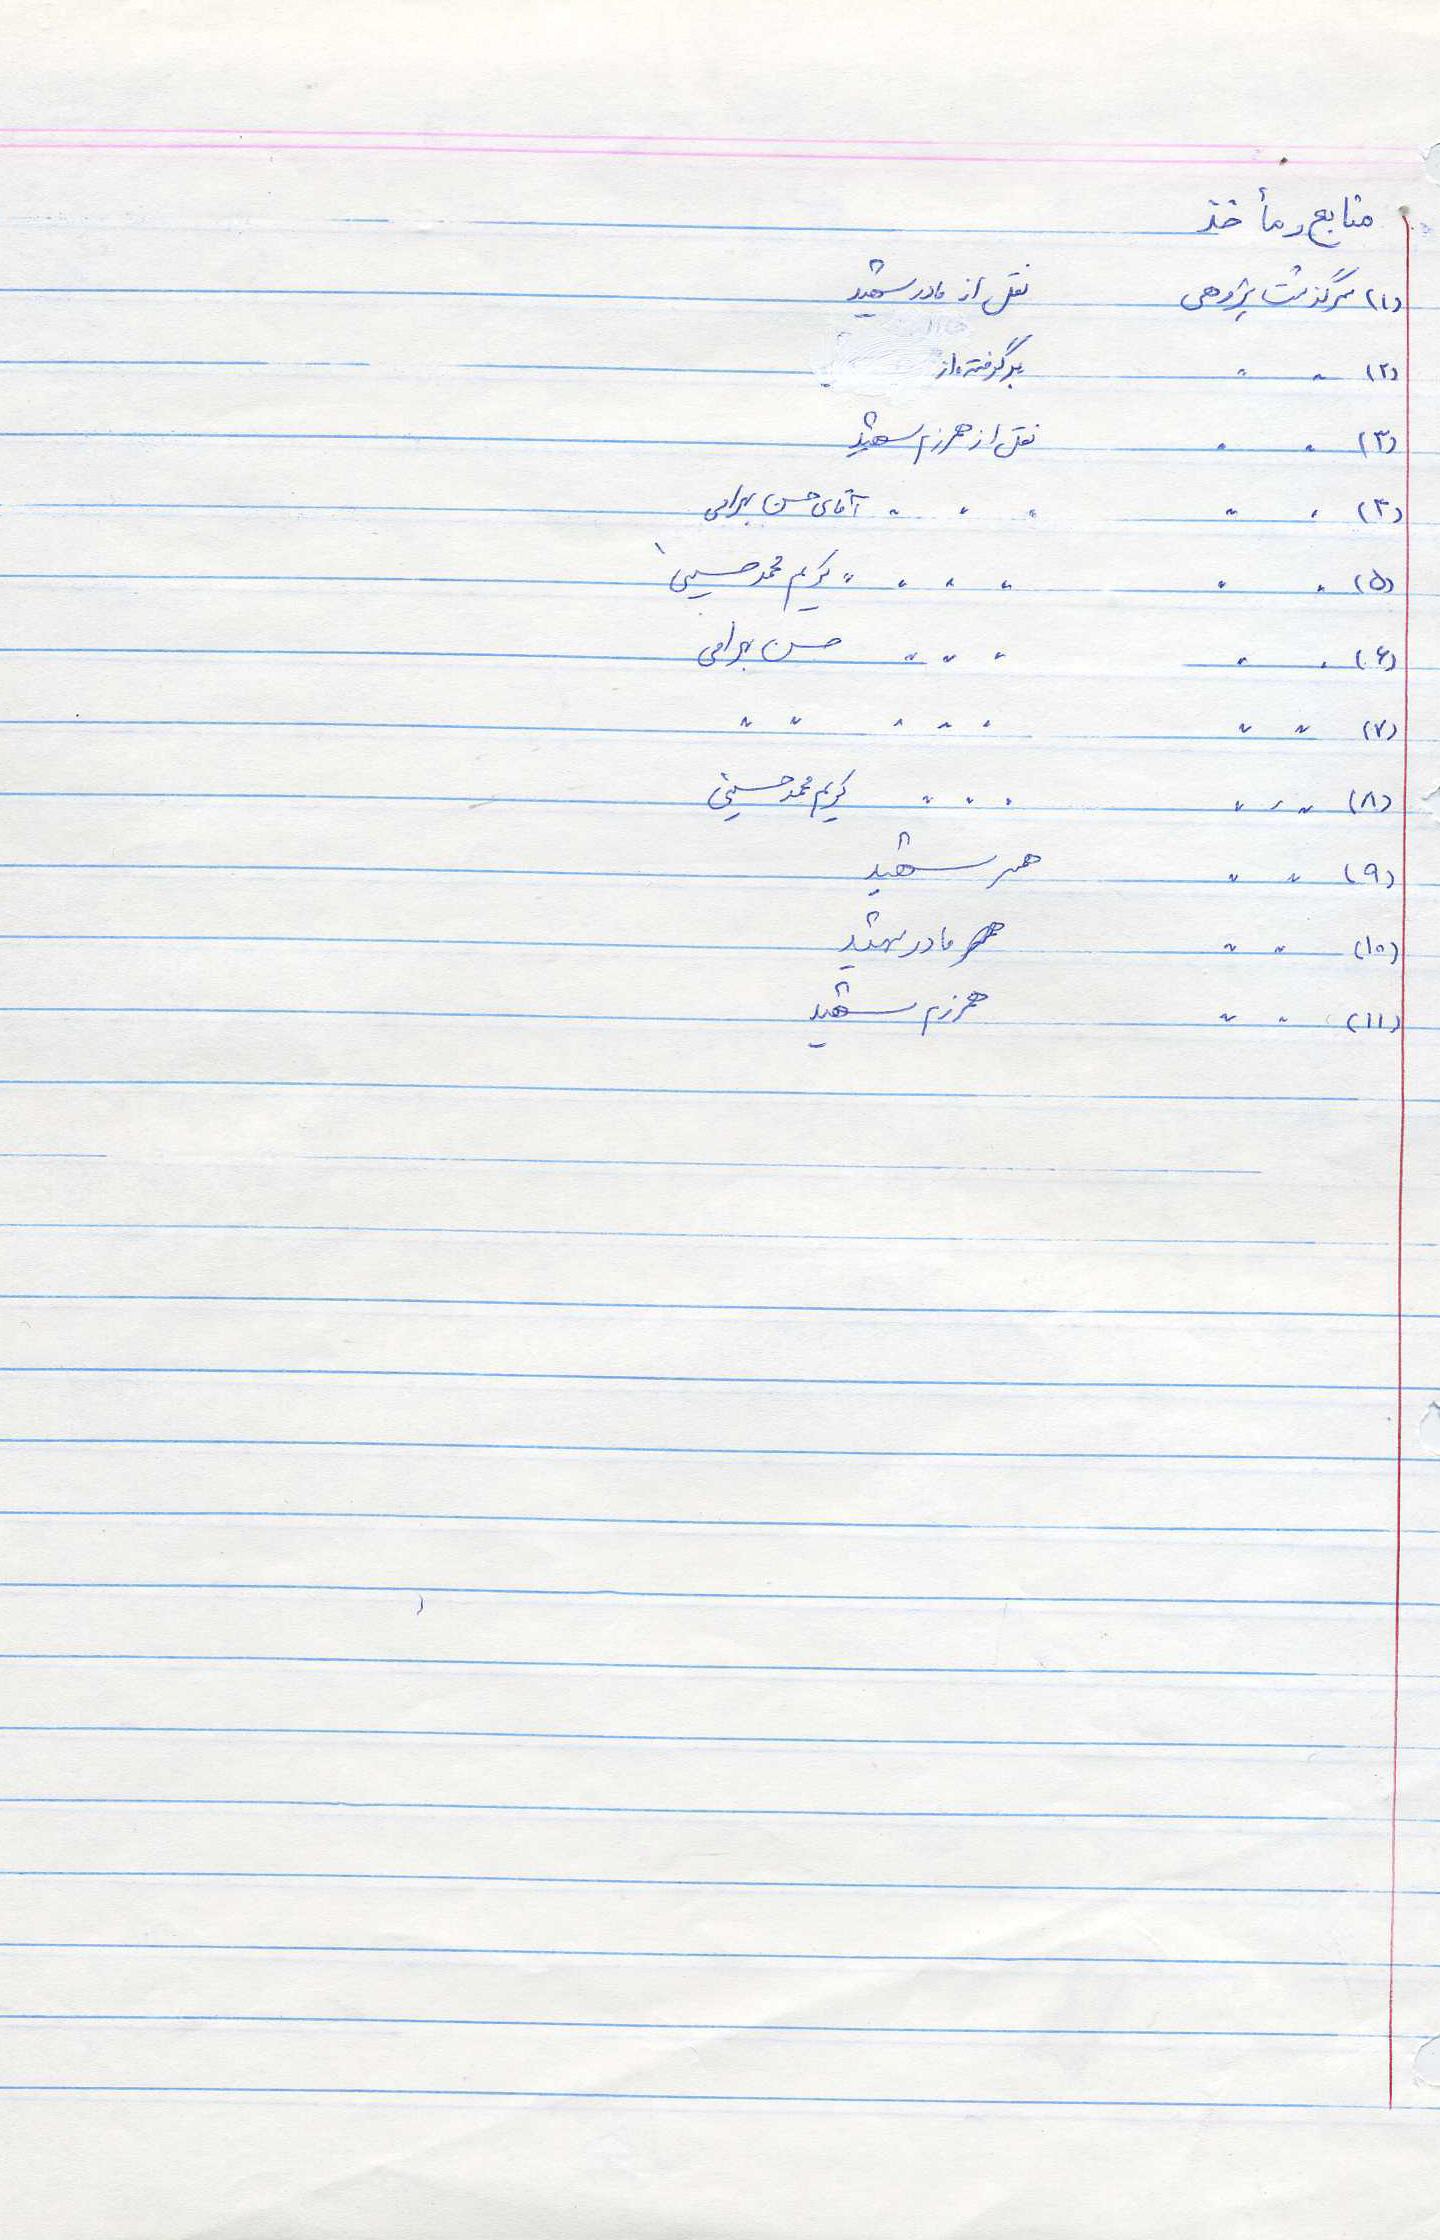 منابع و مأخذ
(۱) سرگذشت پژوهی نقل از مادر شهید
(۲) " " برگرفته از
(۳) " " نقل از همرزم شهید
(۴) " " " " " آقای حسن بهرامی
(۵) " " " " " " کریم محمدحسینی
(۶) " " " " " حسن بهرامی
(۷) " " " " " " "
(۸) " " " " " " کریم محمدحسینی
(۹) " " همسر شهید
(۱۰) " " مادر شهید
(۱۱) " " همرزم شهید